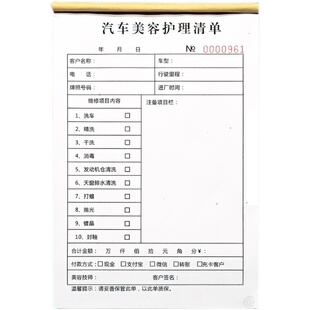 汽车美容护理清单
年 月 日 № 0000961
客户名称： 车型：
电 话： 行驶里程：
牌照号码： 进厂时间：
维修项目内容 注备项目栏：
1、洗车 □
2、精洗 □
3、干洗 □
4、消毒 □
5、发动机仓清洗 □
6、天窗排水清洗 □
7、打蜡 □
8、抛光 □
9、镀晶 □
10、封釉 □
合计金额： 万 仟 佰 拾 元 角 分 ¥：
付款方式：□现金 □支付宝 □微信 □转账 □充卡客户
美容技师： 客户签名：
温馨提示：请妥善保管此单，以此单质保。